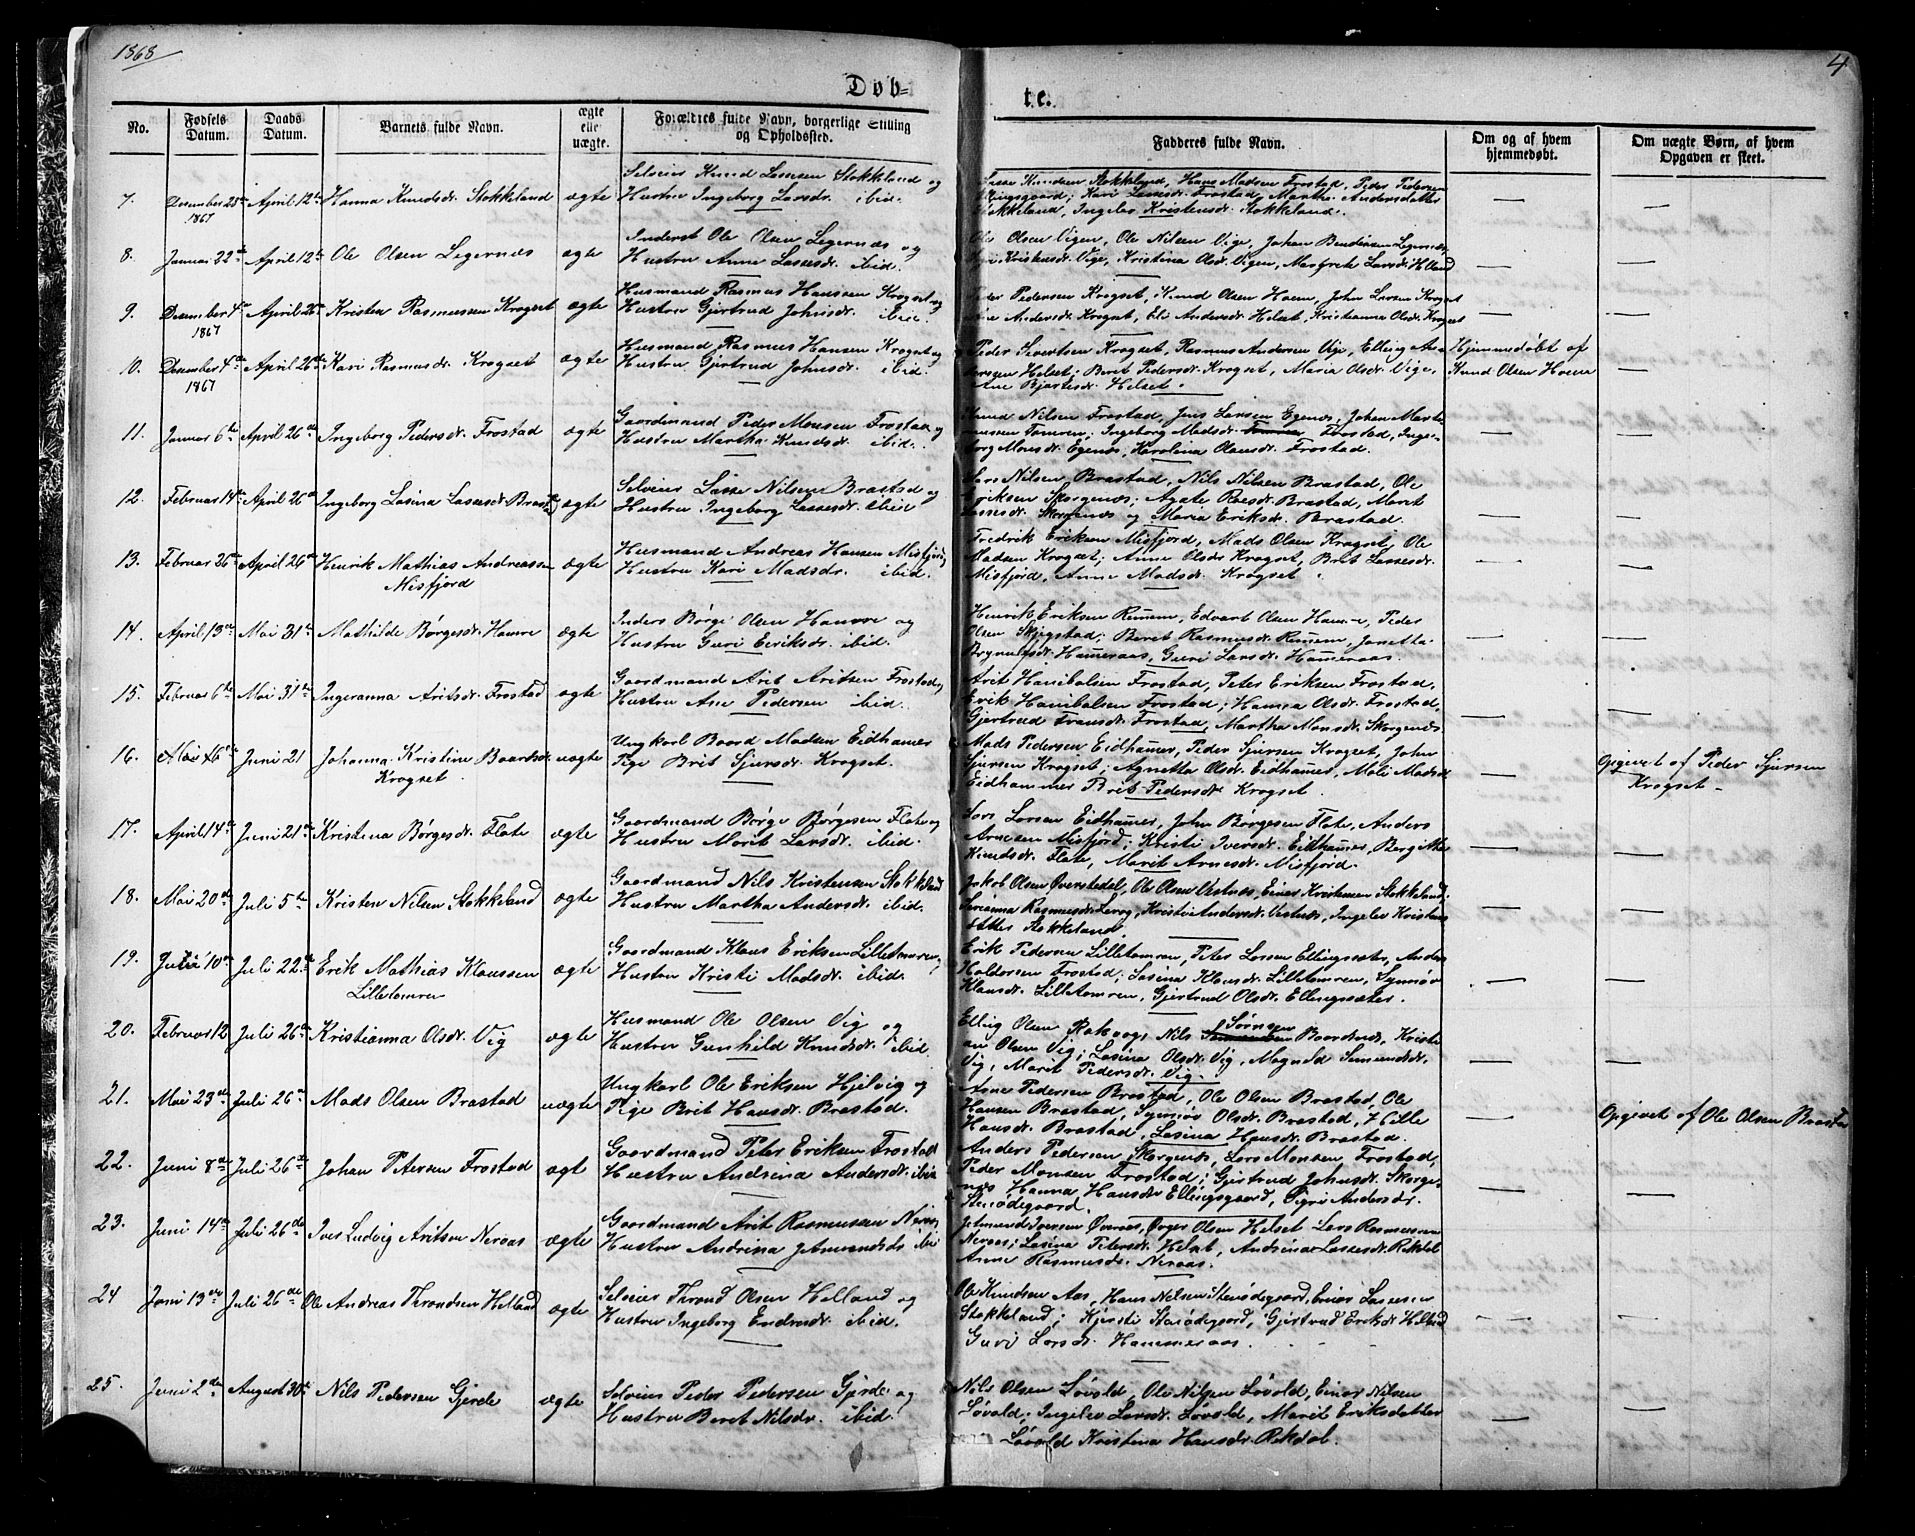 1868
4
Døb-
te.
No.
Fødsels Datum.
Daabs Datum.
Barnets fulde Navn.
ægte elle uægte.
Forældres fulde Navn, borgerlige Stilling og Opholdssted.
Fadderes fulde Navn.
Om og af hvem hjemmedøbt.
Om uægte Børn, af hvem Opgaven er skeet.
7. December 28de 1867 April 12te Hanna Knudsdr. Stokkeland ægte
Selveier Knud Lassesen Stokkeland og
Hustru Ingeborg Larsdr. ibid.
Lasse Knudsen Stokkeland, Hans Madsen Frostad, Peder Pedersen
Ellingsgaard; Kari Lassesdr. Frostad, Martha Andersdatter
Stokkeland, Ingelev Kristensdr. Stokkeland.
8. Januar 22de April 12te Ole Olsen Legernes ægte
Inderst Ole Olsen Legernes og
Hustru Anne Lassesdr. ibid.
Ole Olsen Vigen, Ole Nilsen Vige, Johan Bendixsen Legernes,
Kristensdr. Vige, Kristina Olsdr. Vigen, Margrete Larsdr. Helland
9. Desember 4de 1867 April 26de Kristen Rasmussen Krogset ægte
Husmand Rasmus Hanssen Krogset og
Hustru Gjertrud Johnsdr. ibid.
Peder Pedersen Krogset, Knud Olsen Hoem, John Larsen Krogset
Andersdr. Krogset, Eli Andersdr. Helset, Kristianna Olsdr. Krogset
10. Desember 4de 1867 April 26de Kari Rasmusdr. Krogset ægte
Husmand Rasmus Hansen Krogset og
Hustru Gjertrud Johnsdr. ibid.
Peder Severtsen Krogset, Rasmus Andersen Vige, Elling An-
dersen Helset; Berit Pedersdr. Krogset, Maria Olsdr. Vige,
Ane Bjartesdr. Helset.
Hjemmedøbt af
Knud Olsen Hoem
11. Januar 6te April 26de Ingeborg Pedersdr. Frostad ægte
Gaardmand Peder Monsen Frostad og
Hustru Martha Knudsdr. ibid.
Knud Nilsen Frostad, Jens Larsen Egenes, Johan Marti-
nussen Tomren, Ingeborg Madsdr. Frostad, Inge-
borg Monsdr. Egenes, Karolina Olausdr. Frostad.
12. Februar 14de April 26de Ingeborg Lasina Lassesdr. Brastad ægte
Selveier Lasse Nilsen Brastad og
Hustru Ingeborg Lassesdr. ibid
Lars Nilsen Brastad, Nils Nilsen Brastad, Ole
Eriksen Skorgenes; Agate Roesdr. Brastad, Marit
Lassesdr. Skorgenes og Maria Eriksdr. Brastad.
13. Februar 26de April 26de Henrik Mathias Andreassen ægte
Misfjord
Husmand Andreas Hansen Misfjord
Hustru Kari Madsdr. ibid.
Fredrik Eriksen Misfjord, Mads Olsen Krogset, Ole
Madsen Krogset; Anne Olsdr Krogset, Brit Lassesdr.
Misfjord, Anne Madsdr. Krogset
14. April 13de Mai 31te Mathilde Børgesdr. Hamre ægte
Inders Børge Olsen Hamre og
Hustru Guri Eriksdr. ibid.
Henrik Eriksen Remem, Edvart Olsen Hamre, Peder
Olsen Skjegstad; Beret Rasmusdr. Remem, Janetta
Brynulfsdr. Hammeraas, Guri Larsdr. Hammeraas.
15. Februar 6te Mai 31te Ingeranna Aritsdr. Frostad ægte
Gaardmand Arit Aritsen Frostad og
Hustru Ane Pedersen ibid.
Arit Hanibalsen Frostad, Peter Eriksen Frostad,
Erik Hanibalsen Frostad; Hanna Olsdr. Frostad,
Gjertrud Fransdr. Frostad, Martha Monsdr. Skorgenes
16. Mai 16de Juni 21 Johanna Kristine Baardsdr. uægte
Krogset
Ungkarl Baard Madsen Eidhamer
Pige Brit Sjursdr. Krogset.
Mads Pedersen Eidhamer, Peder Sjursen Krogset, John
Sjursen Krogset; Agnetta Olsdr. Eidhamer, Mali Madsdr
Eidhammer Brit Pedersdr. Krogset.
Opgivet af Peder Sjursen
Krogset
17. April 14de Juni 21de Kristina Børgesdr. Flate ægte
Gaardmand Børge Børgesen Flate og
Hustru Marit Larsdr. ibid.
Lars Larsen Eidhamer, John Børgesen Flate, Anders
Arnesen Misfjord; Kristi Iversdr. Eidhamer, Bergitte
Knudsdr. Flate, Marit Arnesdr. Misfjord.
18. Mai 20de Juli 5te Kristen Nilsen Stokkeland ægte
Gaardmand Nils Kristensen Stokkeland
Hustru Martha Andersdr. ibid.
Jakob Olsen Øverstedel, Ole Olsen Vestnes, Einar Kristensen Stokkeland
Rasmusdr. Kristi Andersdr. Vestnes, Ingelev Kristens
datter Stokkeland.
19. Juli 10de Juli 22de Erik Mathias Klaussen ægte
Lilletomren
Gaardmand Klaus Eriksen Lilletomren og
Hustru Kristi Madsdr. ibid.
Erik Pedersen Lilletomren, Peter Larsen Ellingsæter, Anders
Haldorsen Frostad; Lasina Klausdr. Lilletomren, Synnøv
Klausdr. Lilletomren, Gjertrud Olsdr. Ellingsæter.
20. Februar 12 Juli 26de Kristianna Olsdr. Vig ægte
Husmand Ole Olsen Vig og
Hustru Gunhild Knudsdr. ibid.
Elling Olsen Rakvaag, Nils Sørnsen Baardsnes, Kristi
an Olsen Vig; Lasina Olsdr. Vig, Magnild Semundsdr.
Vig, Marit Pedersdr. Vig.
21. Mai 23de Juli 26de Mads Olsen Brastad uægte
Ungkarl Ole Eriksen Hjelvig og
Pige Brit Hansdr. Brastad.
Arne Pedersen Brastad, Ole Olsen Brastad, Ole
Hansen Brastad, Synnøv Olsdr. Brastad, Hille
Hansdr. Brastad, Lasina Hansdr. Brastad.
Opgivet af Ole Olsen Brastad
22. Juni 8de Juli 26de Johan Petersen Frostad ægt
Gaardmand Peter Eriksen Frostad
Hustru Andrina Andersdr. ibid
Anders Pedersen Skorgenes, Lars Monsen Frostad,
Peder Monsen Frostad; Gjertrud Johnsdr. Skorge-
nes, Hanna Hansdr Ellingsgaard, Sigri Andersdr.
Stenødegaard.
23. Juni 14de Juli 26de Iver Ludvig Aritsen Neraas ægte
Gaardmand Arit Rasmussen Neraas
Hustru Andrina Amundsdr ibid
Jetmund Iversen Øveraas, Ørger Olsen Helset, Lars Rasmussen
Neraas; Lasina Petersdr. Helset, Andrina Lassesdr. Rekdal
Anne Rasmusdr. Neraas.
24 Juni 13de Juli 26de Ole Andreas Throndsen Helland ægte
Selveier Thrond Olsen Helland og
Hustru Ingeborg Endresdr. ibid.
Ole Knudsen Aas, Hans Nilsen Stenødegaard, Einar Lassesen
Stokkeland; Kjersti Stenødegaard, Gjertrud Eriksdr Helland
Guri Larsdr. Hammeraas.
25. Juni 2de August 30te Nils Pedersen Gjerde ægte
Selveier Peder Pedersen Gjerde og
Hustru Beret Nilsdr. ibid.
Nils Olsen Løvold, Ole Nilsen Løvold, Einar Nilsen
Løvold; Ingelev Larsdr. Løvold, Marit Eriksdatter
Løvold Kristina Hansdr. Rekdal.